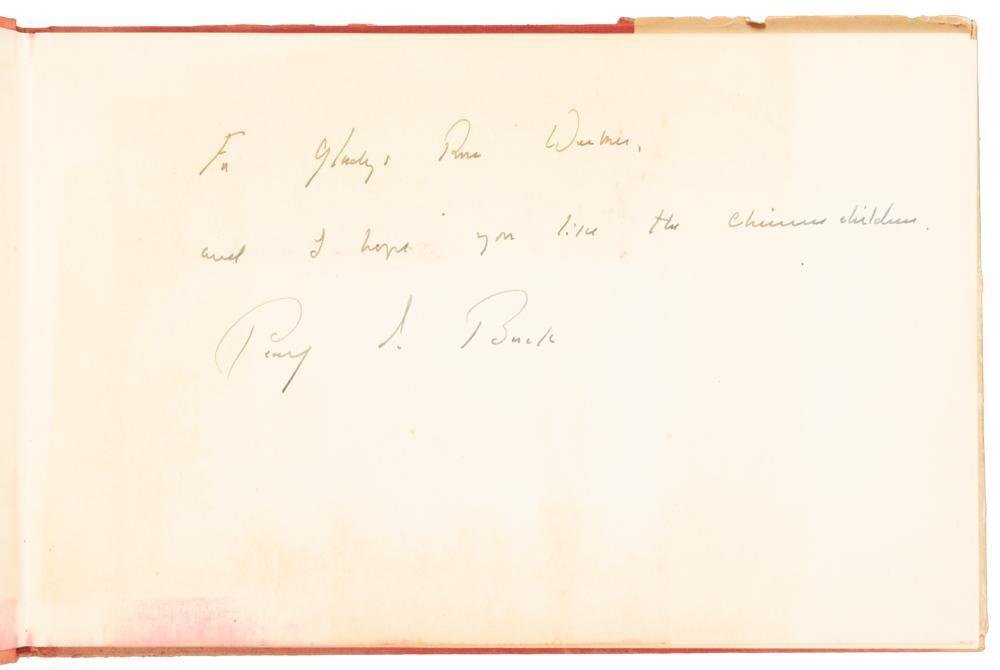 For Gladys Rose
and I hope you like the Chinese children.
Pearl S. Buck